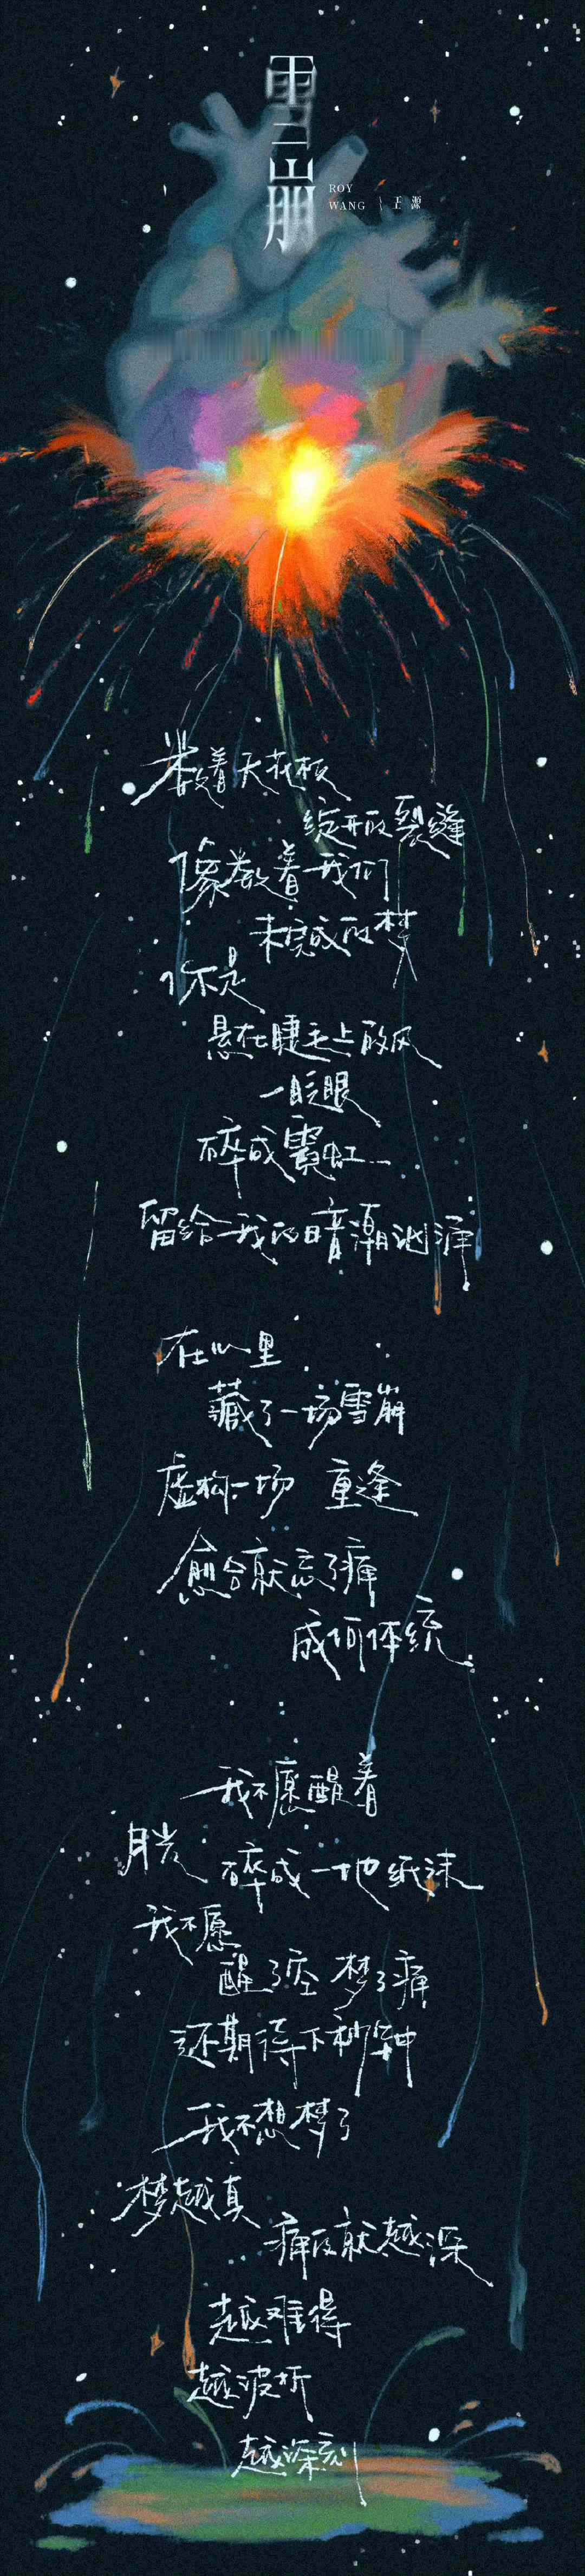 雪崩
ROY
WANG 王源
数着天花板
绽开的裂缝
像数着我们
未完成的梦
你不是
悬在睫毛上的风
一眨眼
碎成霓虹
留给我的暗潮汹涌
在心里
藏了一场雪崩
虚构一场 重逢
愈合就忘了痛
成何体统
我不愿醒着
月光 碎成一地纸沫
我不愿
醒了空 梦了痛
还期待下秒钟
我不想梦了
梦越真
痛的就越深
越难得
越波折
越深刻